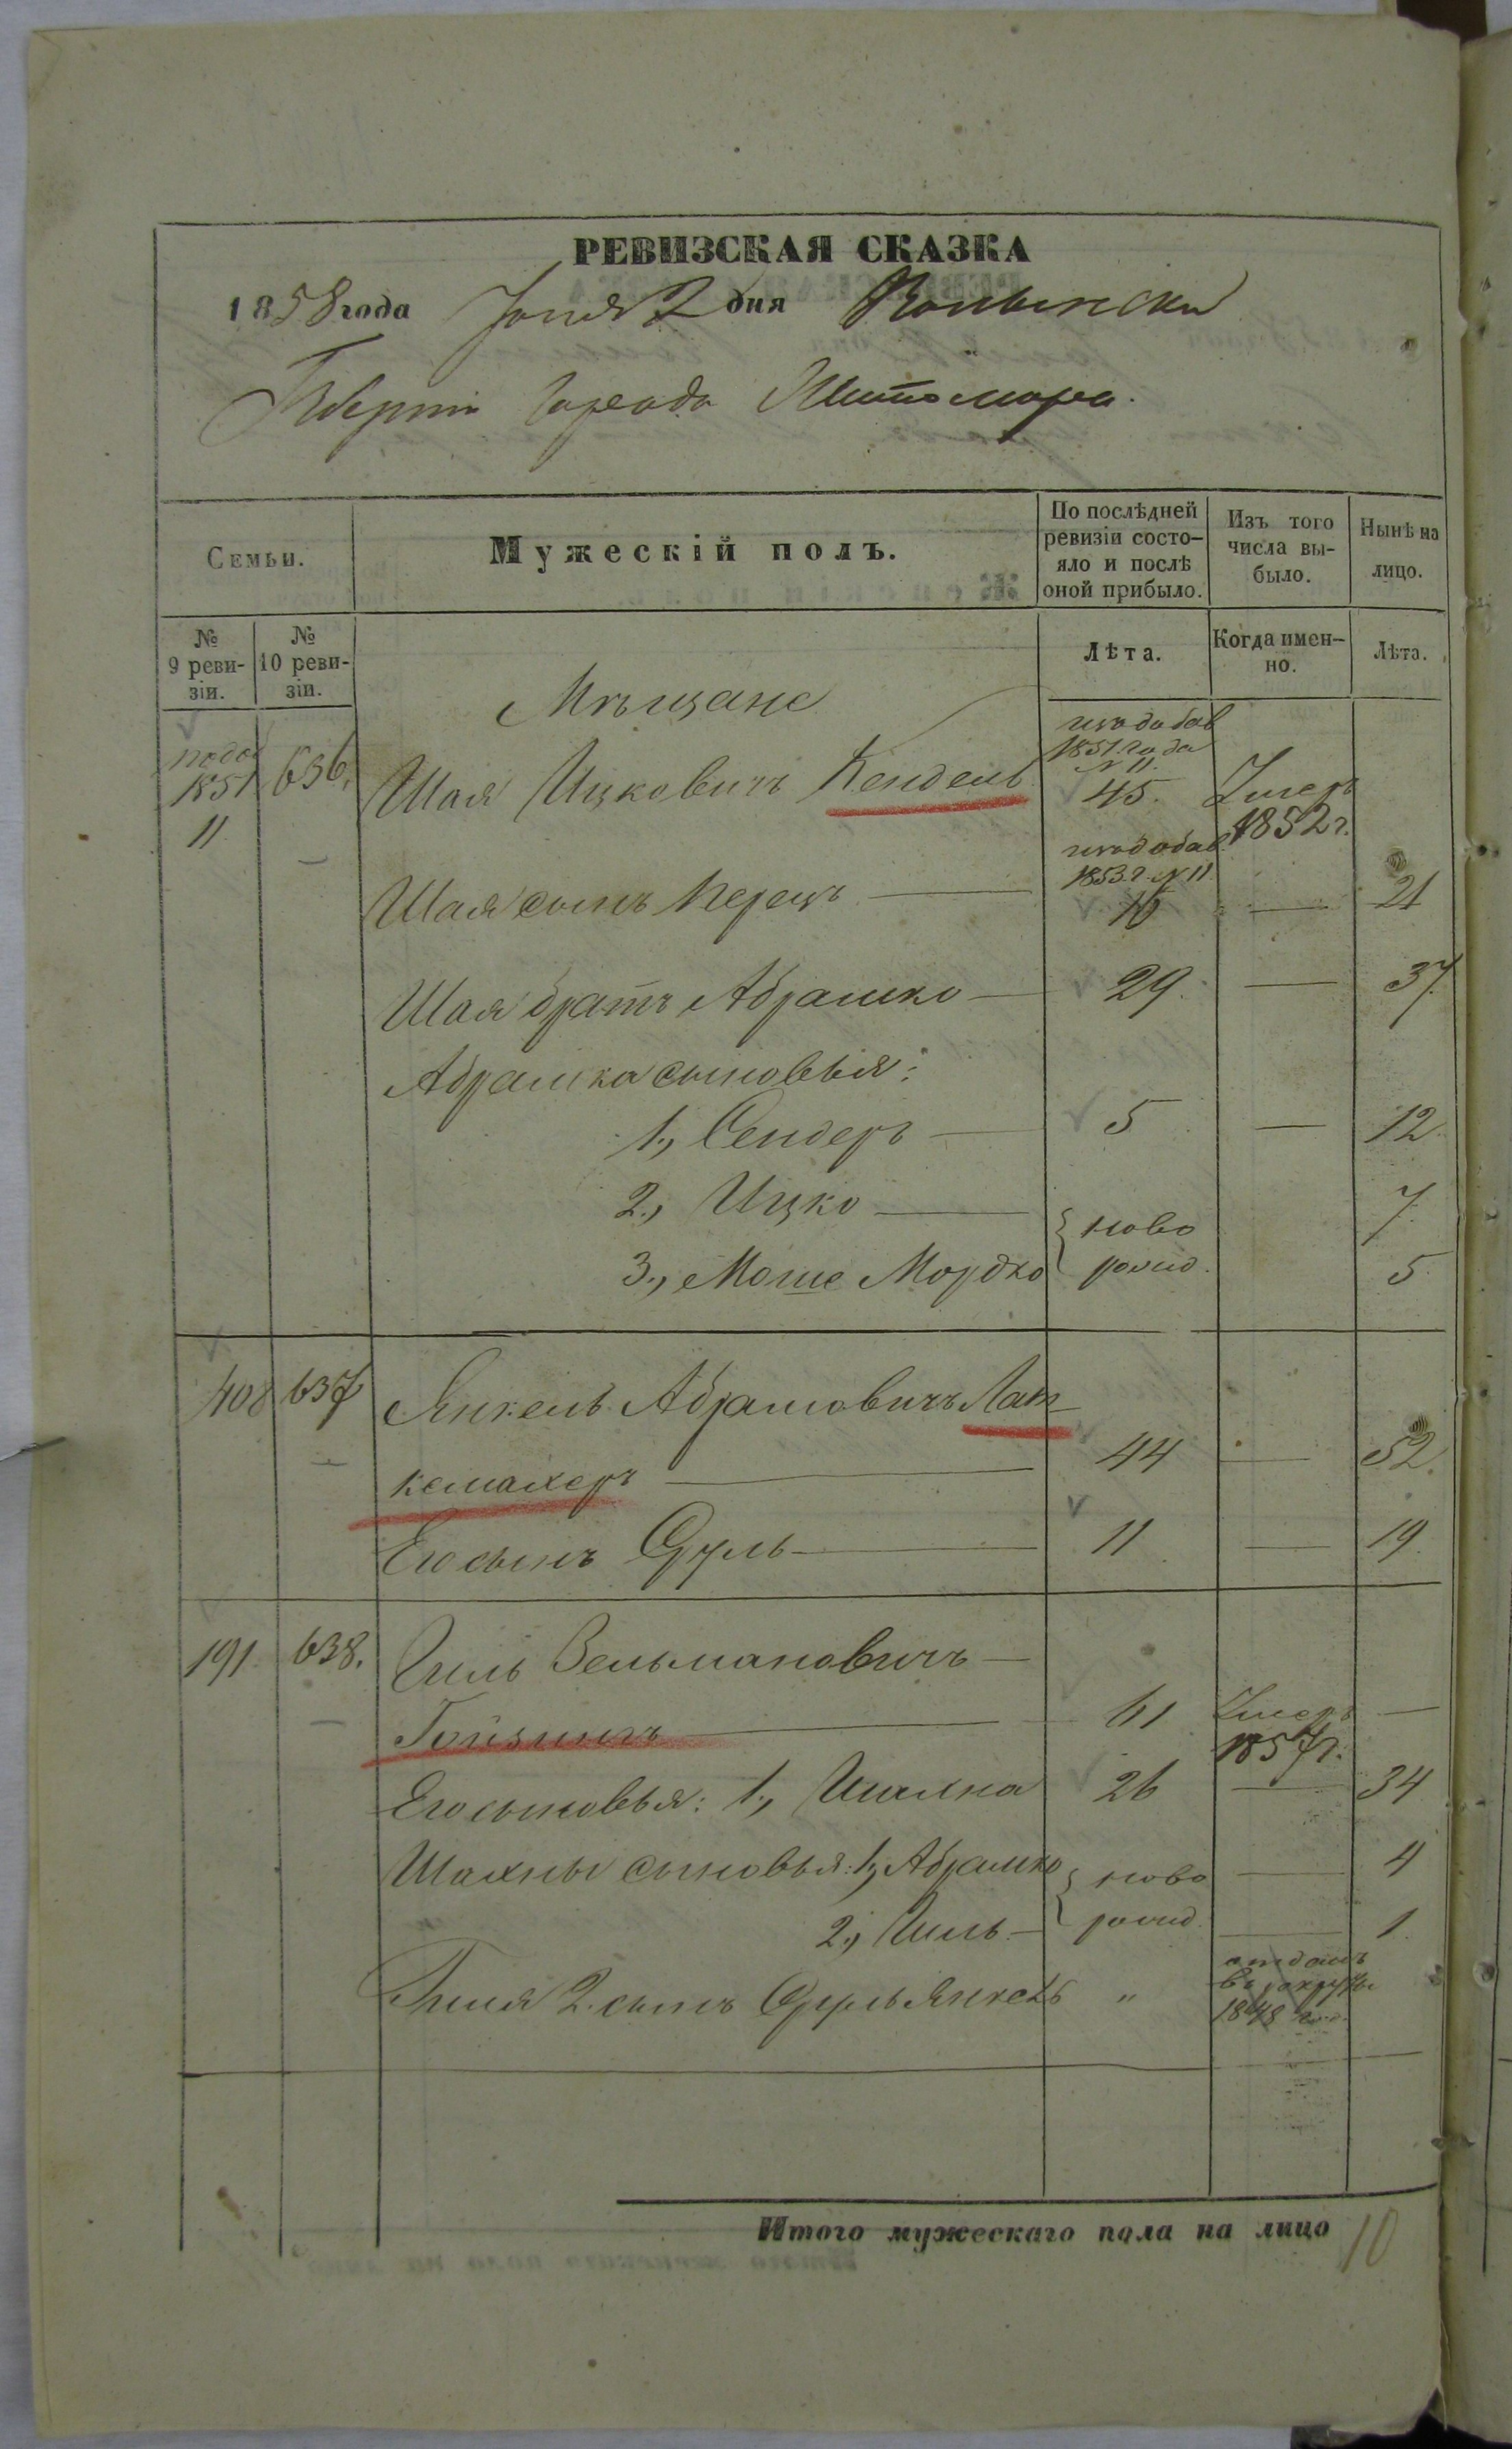 РЕВИЗСКАЯ СКАЗКА
1858 года Іюня 2 дня Волынской
Губерніи города Житомира.
Семьи.
Мужескій полъ.
По послѣдней ревизіи состо-
яло и послѣ оной прибыло.
Изъ того числа вы-
было.
Нынѣ на лицо.
№ 9 реви-
зіи.
№ 10 реви-
зіи.
Лѣта.
Когда имен-
но.
Лѣта.
Мѣщане
1851 11 636.
1851 года № 11.
Шая Ицковичъ Кендель 45. Умеръ 1852 г.
1853 г. № 11
Шая сынъ Перецъ 16 — 21
Шая братъ Абрамко — 29. — 37.
Абрамка сыновья:
1., Сендеръ — 5 — 12.
2., Ицко — ново 7.
3., Моше Мордко рожд. 5
408 637 Янкель Абрамовичъ Лат-
кемахеръ — 44 — 52.
Его сынъ Сруль — 11 — 19.
191. 638. Гиль Зельмановичъ —
Гойзманъ — 61 Умеръ 1857 г. —
Его сыновья: 1., Шахна 26 — 34
Шахны сыновья: 1, Абрамко ново — 4
2., Гиль — рожд. — 1
Гиля 2. сынъ Сруль Янкель " отданъ въ рекруты 1848 г.
Итого мужескаго пола на лицо 10